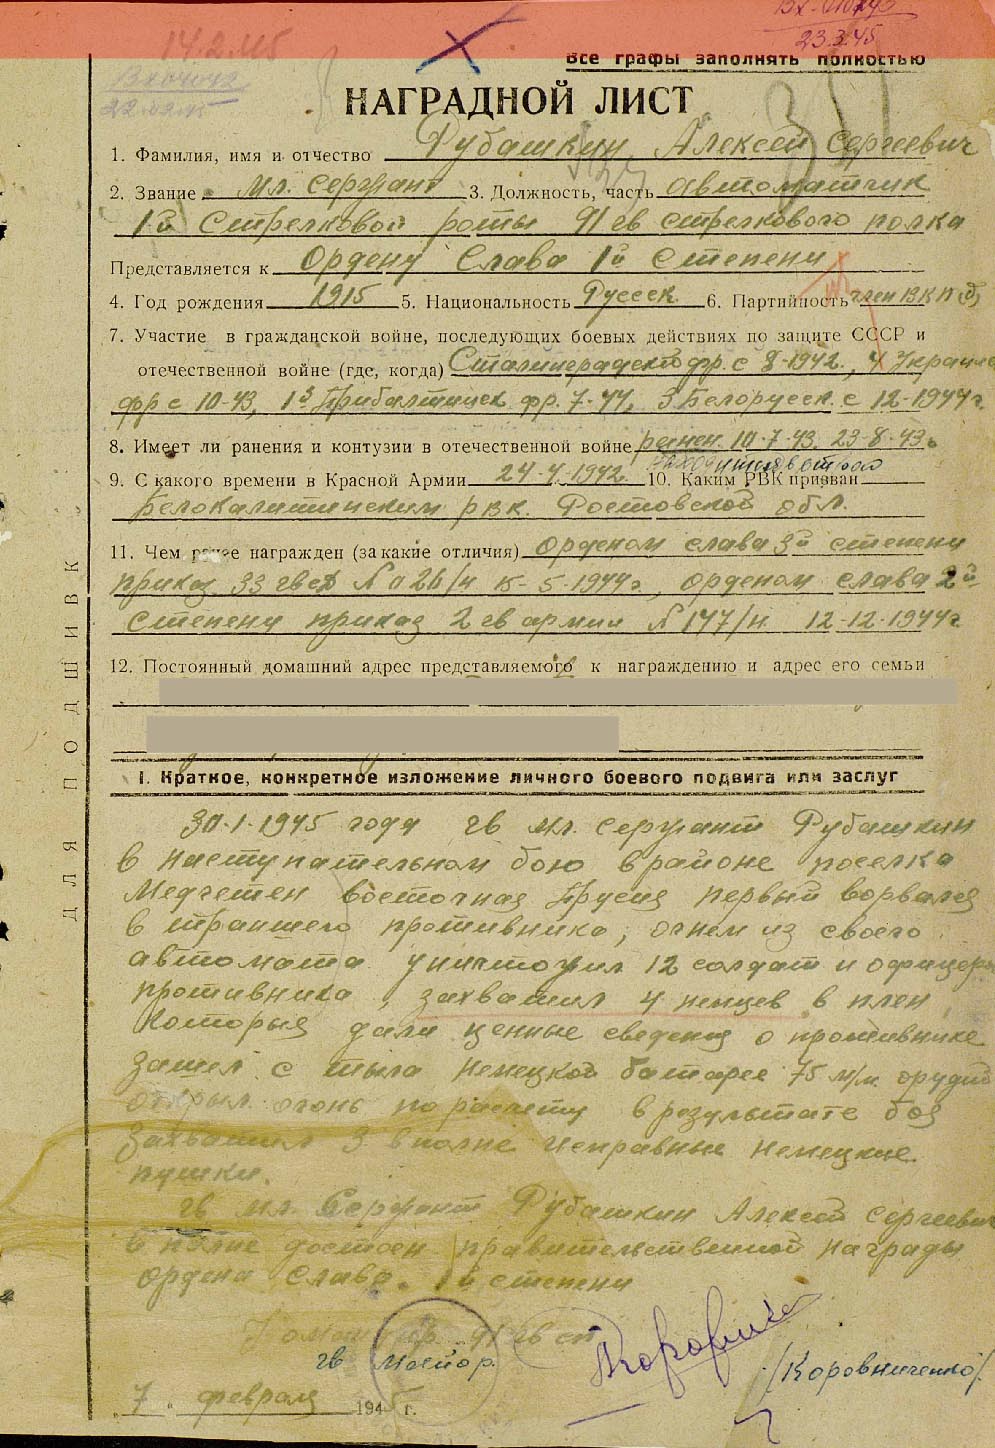 23.3.45
14.2.45
Все графы заполнять полностью
НАГРАДНОЙ ЛИСТ
1. Фамилия, имя и отчество Рубашкин Алексей Сергеевич
2. Звание мл. сержант 3. Должность, часть автоматчик
1й Стрелковой роты 91 гв стрелкового полка
Представляется к Ордену Слава 1й Степени
4. Год рождения 1915 5. Национальность Русск. 6. Партийность член ВКП(б)
7. Участие в гражданской войне, последующих боевых действиях по защите СССР и
отечественной войне (где, когда) Сталинградский фр. с 8-1942., 4 Украинс
фр с 10-43, 1й Прибалтийск фр. 7-44, 3 Белорусск. с 12-1944г.
8. Имеет ли ранения и контузии в отечественной войне ранен. 10-7-43. 23-8-43.
9. С какого времени в Красной Армии 24-4-1942. 10. Каким РВК призван
Белокалитвинским рвк. Ростовской обл.
11. Чем ранее награжден (за какие отличия) орденом слава 3й степени
приказ 33 гвсд № 026/н 5-1944г., орденом слава 2й
Степени приказ 2 гв армии № 147/н 12-12-1944г.
12. Постоянный домашний адрес представляемого к награждению и адрес его семьи
ДЛЯ ПОДШИВК
I. Краткое, конкретное изложение личного боевого подвига или заслуг
30-1-1945 года гв мл. сержант Рубашкин
в наступательном бою в районе поселка
Медгетен восточная Прусия первый ворвался
в траншею противника, огнем из своего
автомата уничтожил 12 солдат и офицеров
противника, захватил 4 немцев в плен,
которыя дали ценные сведения о противнике
зашел с тыла немецкой батарее 75 м/м. орудий
открыл огонь по расчету в результате боя
захватил 3 вполне исправные немецкие
пушки.
гв мл. Сержант Рубашкин Алексей Сергеевич
вполне достоен правительственной награды
ордена Слава. 1й степени
Командир 91 гв сп
гв майор. /Коровниченко/
"7" февраля 1945 г.